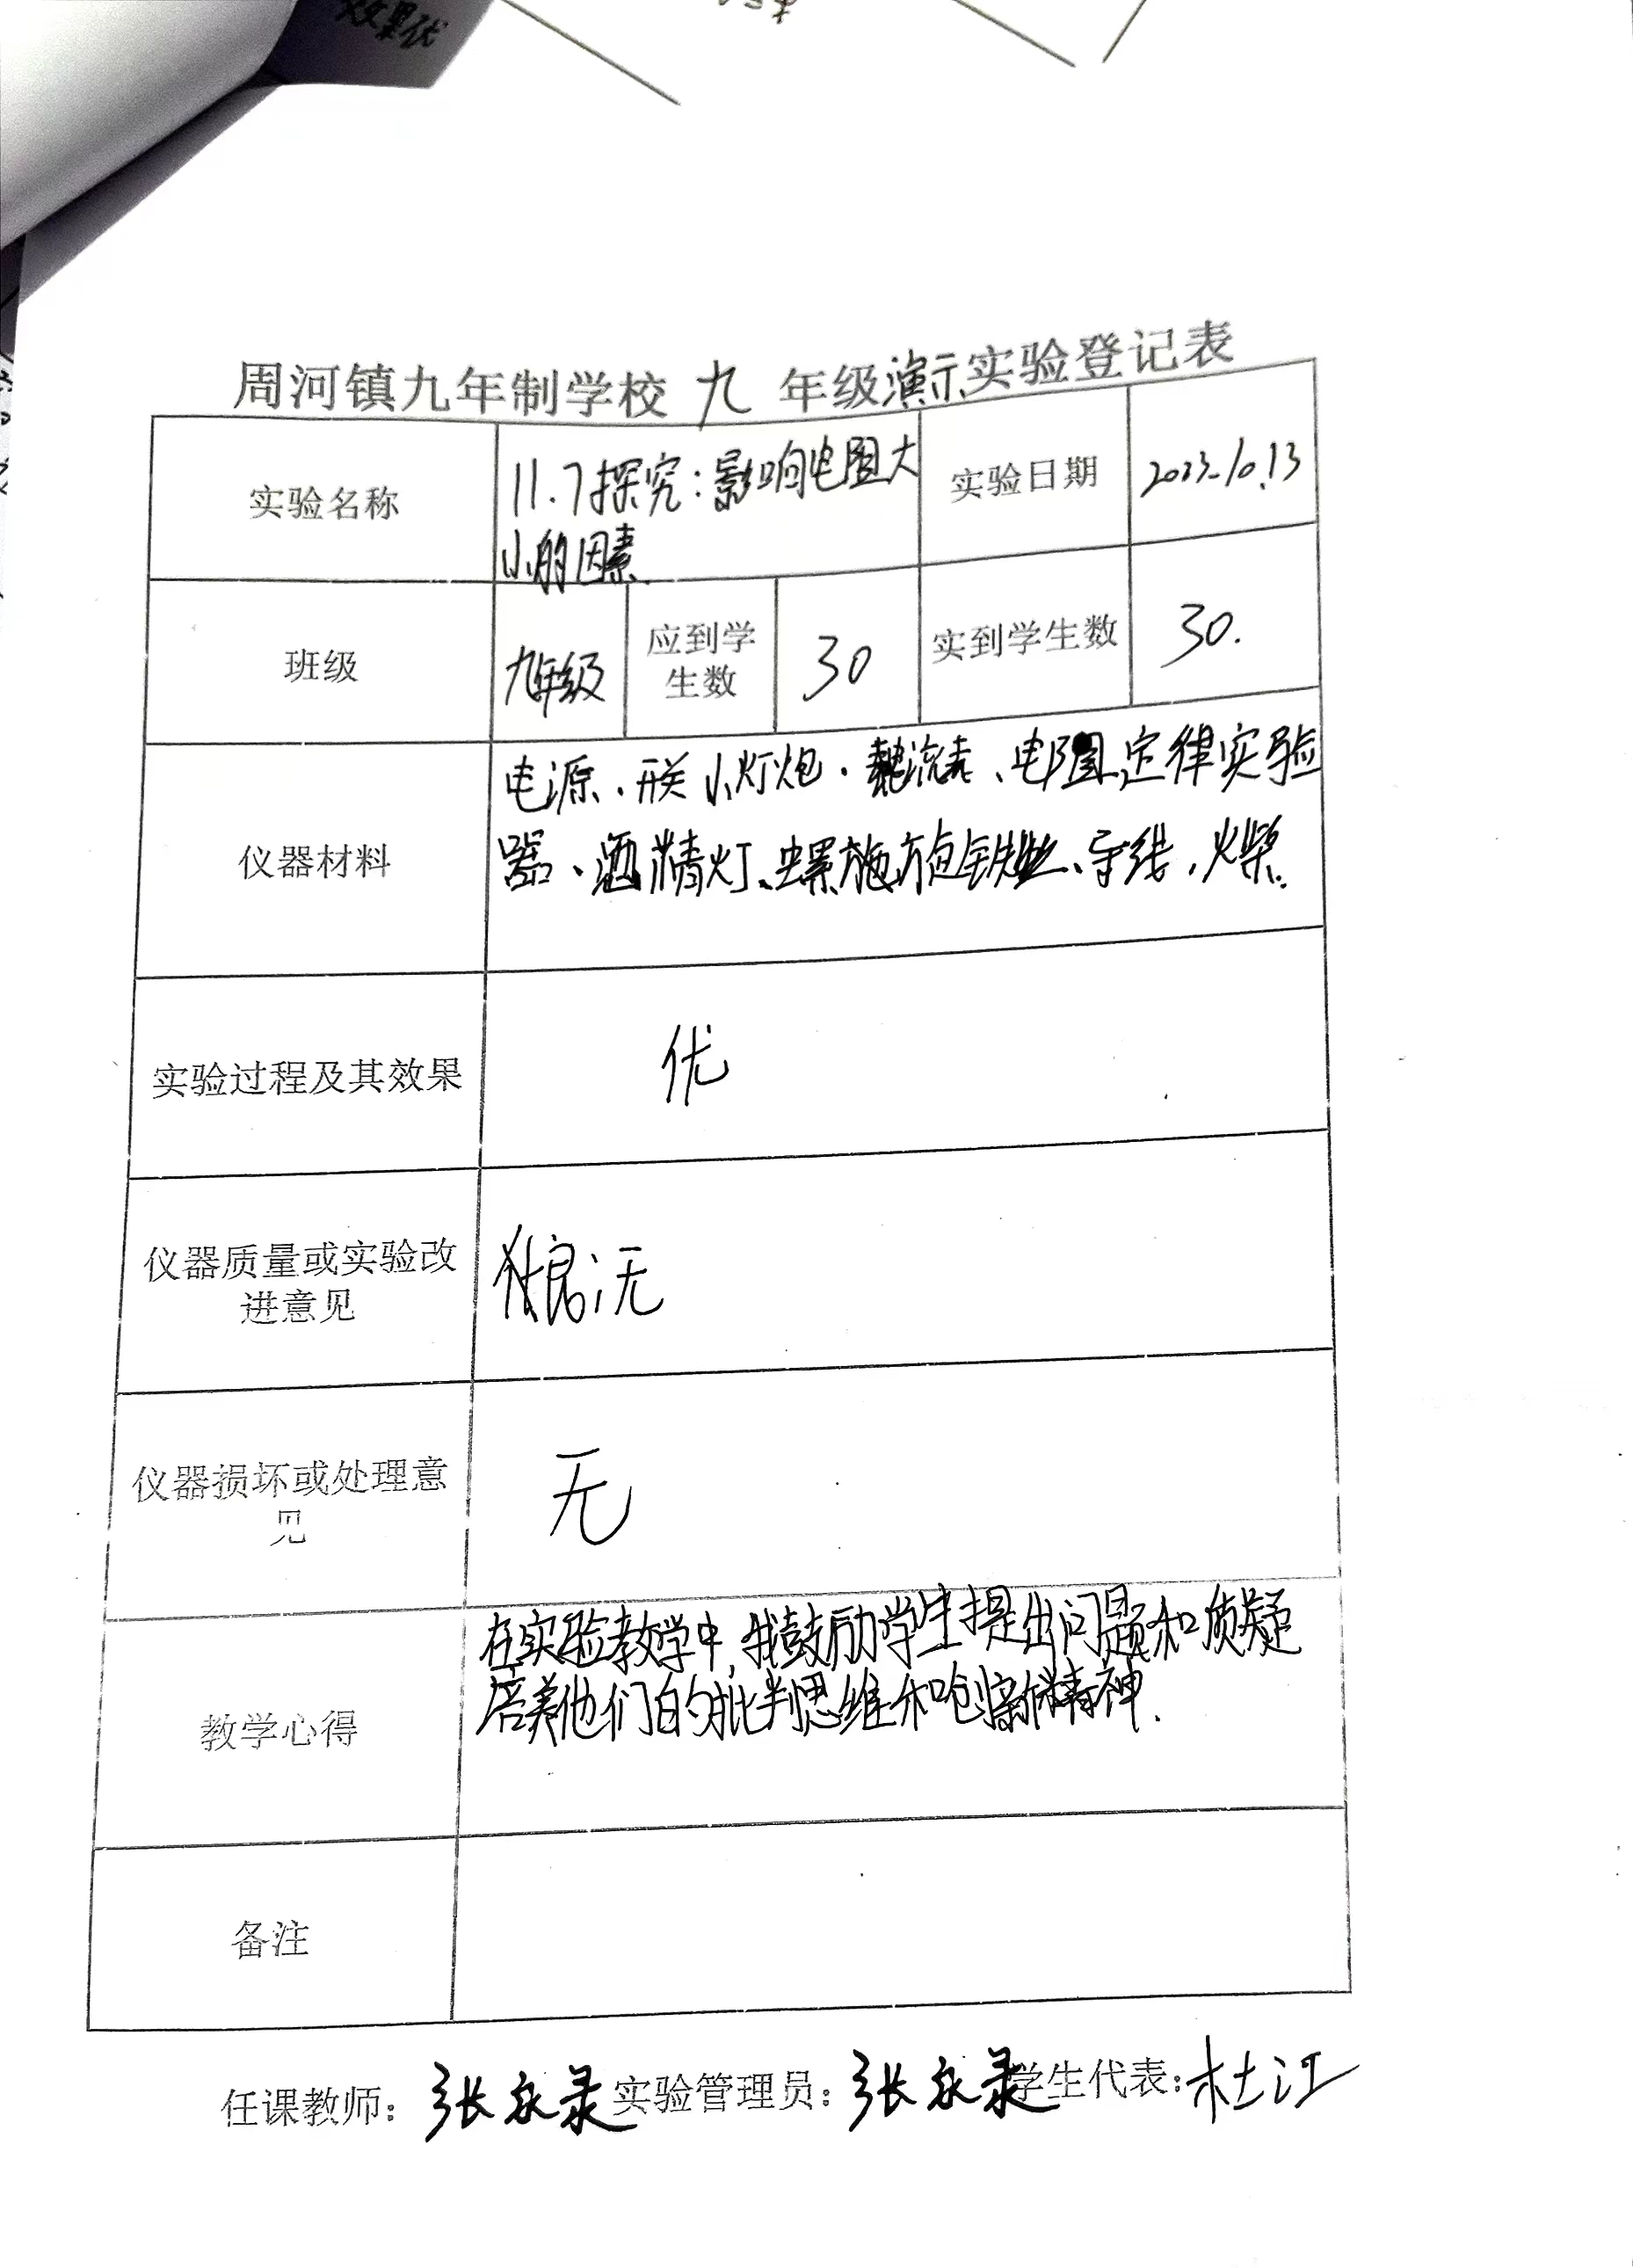 效果优
周河镇九年制学校 九 年级演示实验登记表
实验名称
11.7探究:影响电阻大
小的因素
实验日期
2023.10.13
班级
九年级
应到学
生数
30
实到学生数
30.
仪器材料
电源、开关 小灯炮、电流表、电阻定律实验
器、酒精灯、螺旋铁丝、导线,火柴.
实验过程及其效果
优
仪器质量或实验改
进意见
良;无
仪器损坏或处理意
见
无
教学心得
在实验教学中,我鼓励学生提出问题和质疑
培养他们的批判思维和创新精神.
备注
任课教师: 张永录 实验管理员: 张永录 学生代表: 杜江